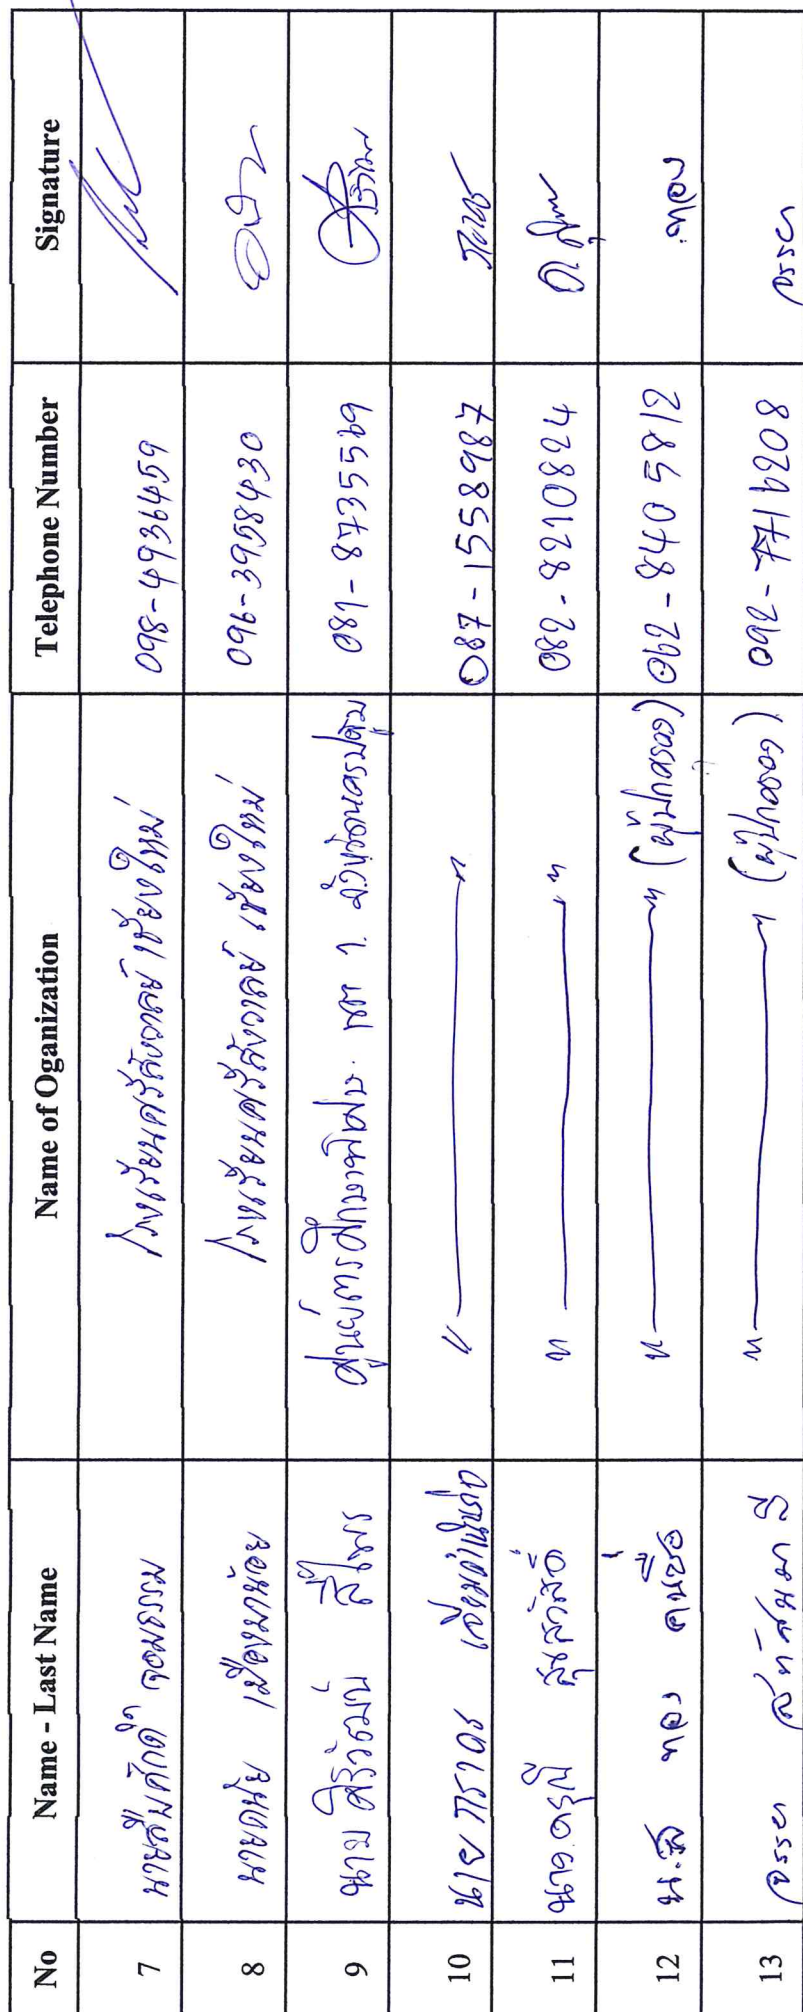 No Name - Last Name Name of Oganization Telephone Number Signature
7 นายสืบศักดิ์ จอมธรรม โรงเรียนศรีสังวาลย์ เชียงใหม่ 098-4936459
8 นายดนัย เมืองมาน้อย โรงเรียนศรีสังวาลย์ เชียงใหม่ 096-3958430
9 นาย ศิริวัฒน์ ศูนย์การศึกษาพิเศษ เขต 1 จังหวัดนครปฐม 081-8735569
10 นาย " ———— " 087-1558987
11 นาง ดรุณี สุขสวัสดิ์ " ———— " 082-8210824
12 น.ส ทอง " ———— " (ผู้ปกครอง) 062-840 5812 ทอง
13 จรรยา " ———— " (ผู้ปกครอง) 092-7716208 จรรยา